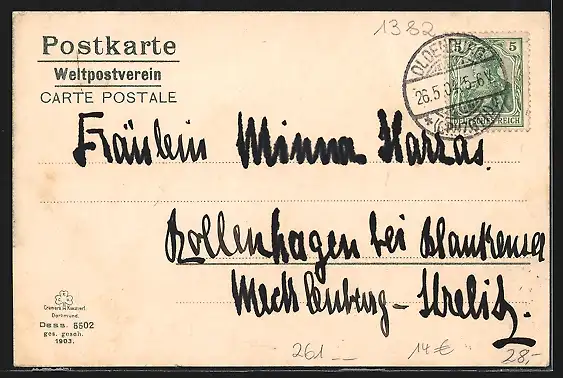 1382
Postkarte
Weltpostverein
CARTE POSTALE
5
OLDENBURG
26.5.04. 5-6V.
DEUTSCHES REICH
Fräulein Minna Harzas.
Rollenhagen bei Blankensee
Mecklenburg-Strelitz.
Dortmund.
Dess. 5502
ges. gesch.
1903.
261 --
14€
28,-